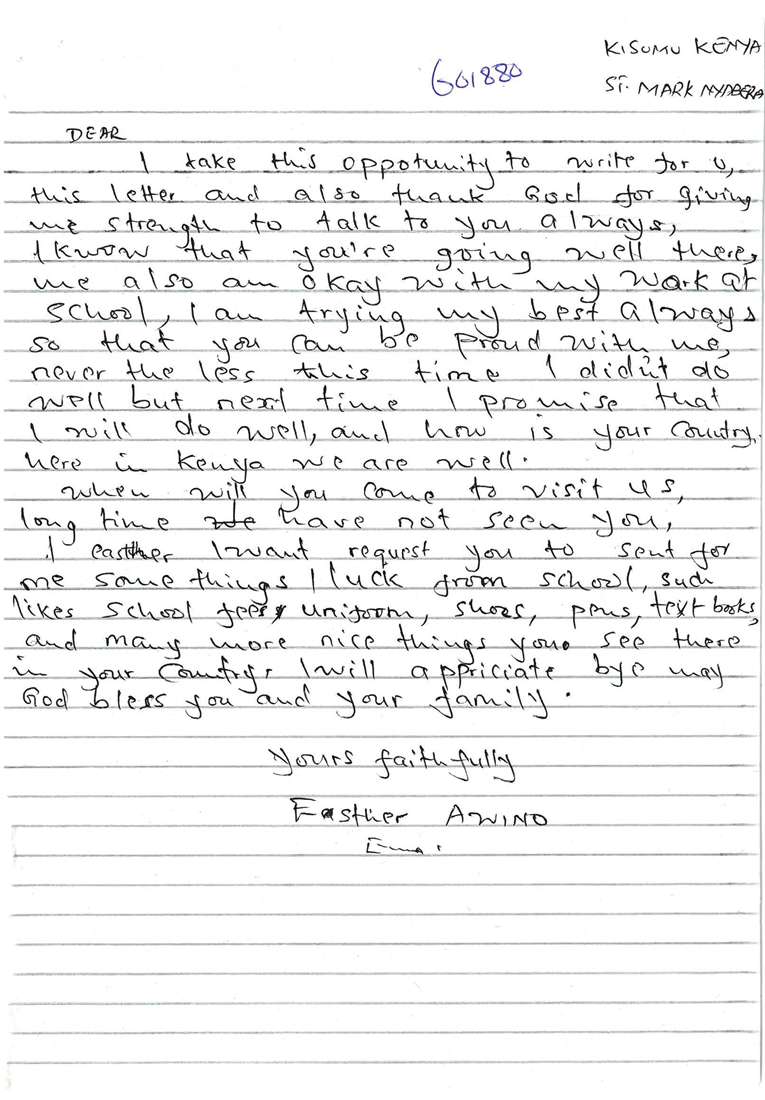 KISUMU KENYA
G01880
ST. MARK NYABERA
DEAR
I take this oppotunity to write for u,
this letter and also thank God for giving
me strength to talk to you always,
I know that you're going well there,
me also am okay with my work at
school, I am trying my best always
so that you can be proud with me,
never the less this time I didn't do
well but next time I promise that
I will do well, and how is your country,
here in Kenya we are well.
when will you come to visit us,
long time have not seen you,
I easther I want request you to sent for
me some things I luck from school, such
likes school fees, uniform, shoes, pens, text books,
and many more nice things you see there
in your country, I will appriciate bye may
God bless you and your family.
Yours faithfully
Easther AWINO